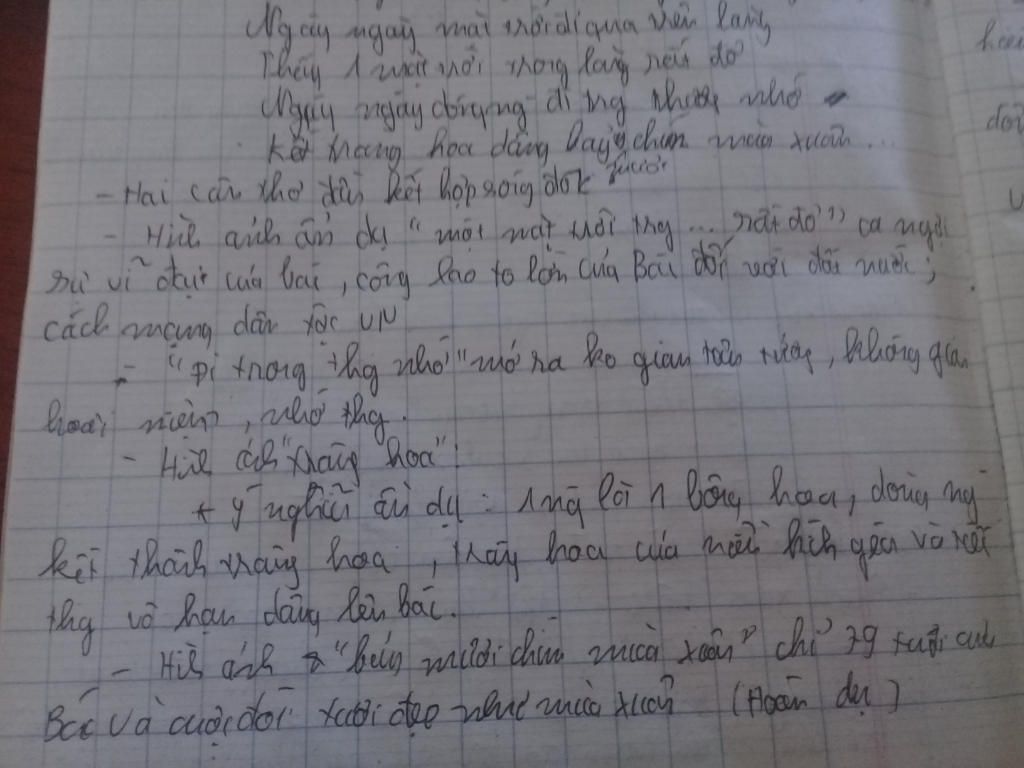 Ngày ngày mặt trời đi qua trên lăng
Thấy 1 mặt trời trong lăng rất đỏ
Ngày ngày dòng ng đi trg thương nhớ
Kết tràng hoa dâng bảy chín mùa xuân...
- Hai câu thơ đầu kết hợp sóng đôi
- Hình ảnh ẩn dụ "một mặt trời trg ... rất đỏ" ca ngợi
sự vĩ đại của bác, công lao to lớn của Bác đối với đất nước;
cách mạng dân tộc VN
- "Đi trong thg nhớ" mở ra ko gian tâm tưởng, không gian
hoài niệm, nhớ thg.
- Hình ảnh "tràng hoa":
+ ý nghĩa ẩn dụ: 1 ng là 1 bông hoa, dòng ng
kết thành tràng hoa, tràng hoa của niềm kính yêu và tiếc
thg vô hạn dâng lên bác.
- Hình ảnh "bảy mươi chín mùa xuân" chỉ 79 tuổi của
Bác và cuộc đời tươi đẹp như mùa xuân (Hoán dụ)
hoài
đời